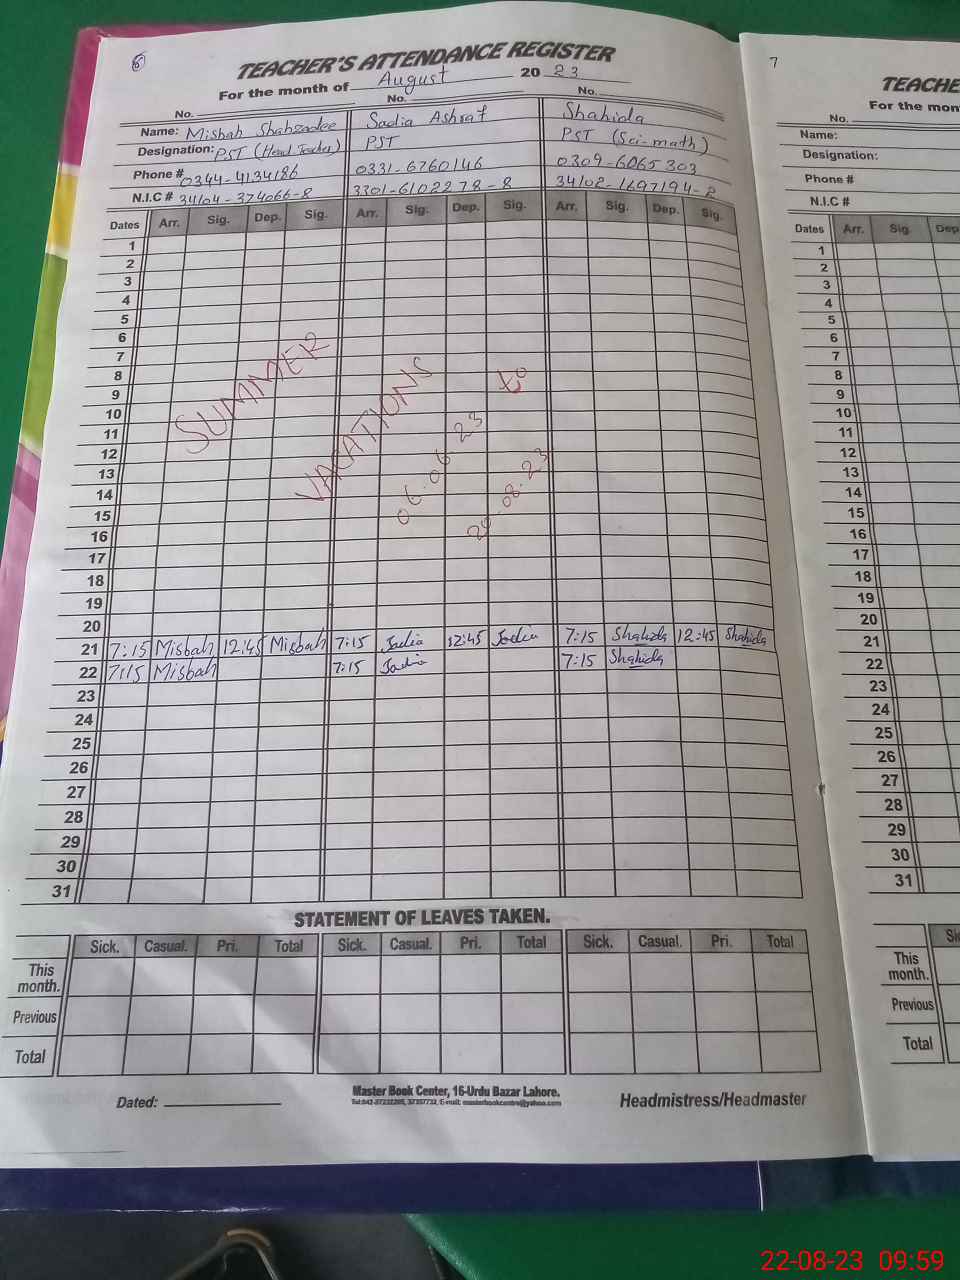 6
TEACHER'S ATTENDANCE REGISTER
For the month of August 20 23
No. No. No.
Name: Misbah Shahzadee Sadia Ashraf Shahida
Designation: PST (Head Teacher) PST PST (Sci-math)
Phone # 0344-4134186 0331-6760146 0309-6065303
N.I.C # 34104-374066-8 3301-6102278-8 34102-1697194-2
Dates Arr. Sig. Dep. Sig. Arr. Sig. Dep. Sig. Arr. Sig. Dep. Sig.
1
2
3
4
5
6
7
8
9
10
11
12
13
14
15
16
17
18
19
20
SUMMER VACATIONS
06.06.23 to
20.08.23
21 7:15 Misbah 12:45 Misbah 7:15 Sadia 12:45 Sadia 7:15 Shahida 12:45 Shahida
22 7:15 Misbah 7:15 Sadia 7:15 Shahida
23
24
25
26
27
28
29
30
31
STATEMENT OF LEAVES TAKEN.
Sick. Casual. Pri. Total Sick. Casual. Pri. Total Sick. Casual. Pri. Total
This month.
Previous
Total
Dated:
Master Book Center, 16-Urdu Bazar Lahore.
Headmistress/Headmaster
7
TEACHE
For the mon
No.
Name:
Designation:
Phone #
N.I.C #
Dates Arr. Sig. Dep
1
2
3
4
5
6
7
8
9
10
11
12
13
14
15
16
17
18
19
20
21
22
23
24
25
26
27
28
29
30
31
Si
This month.
Previous
Total
22-08-23 09:59